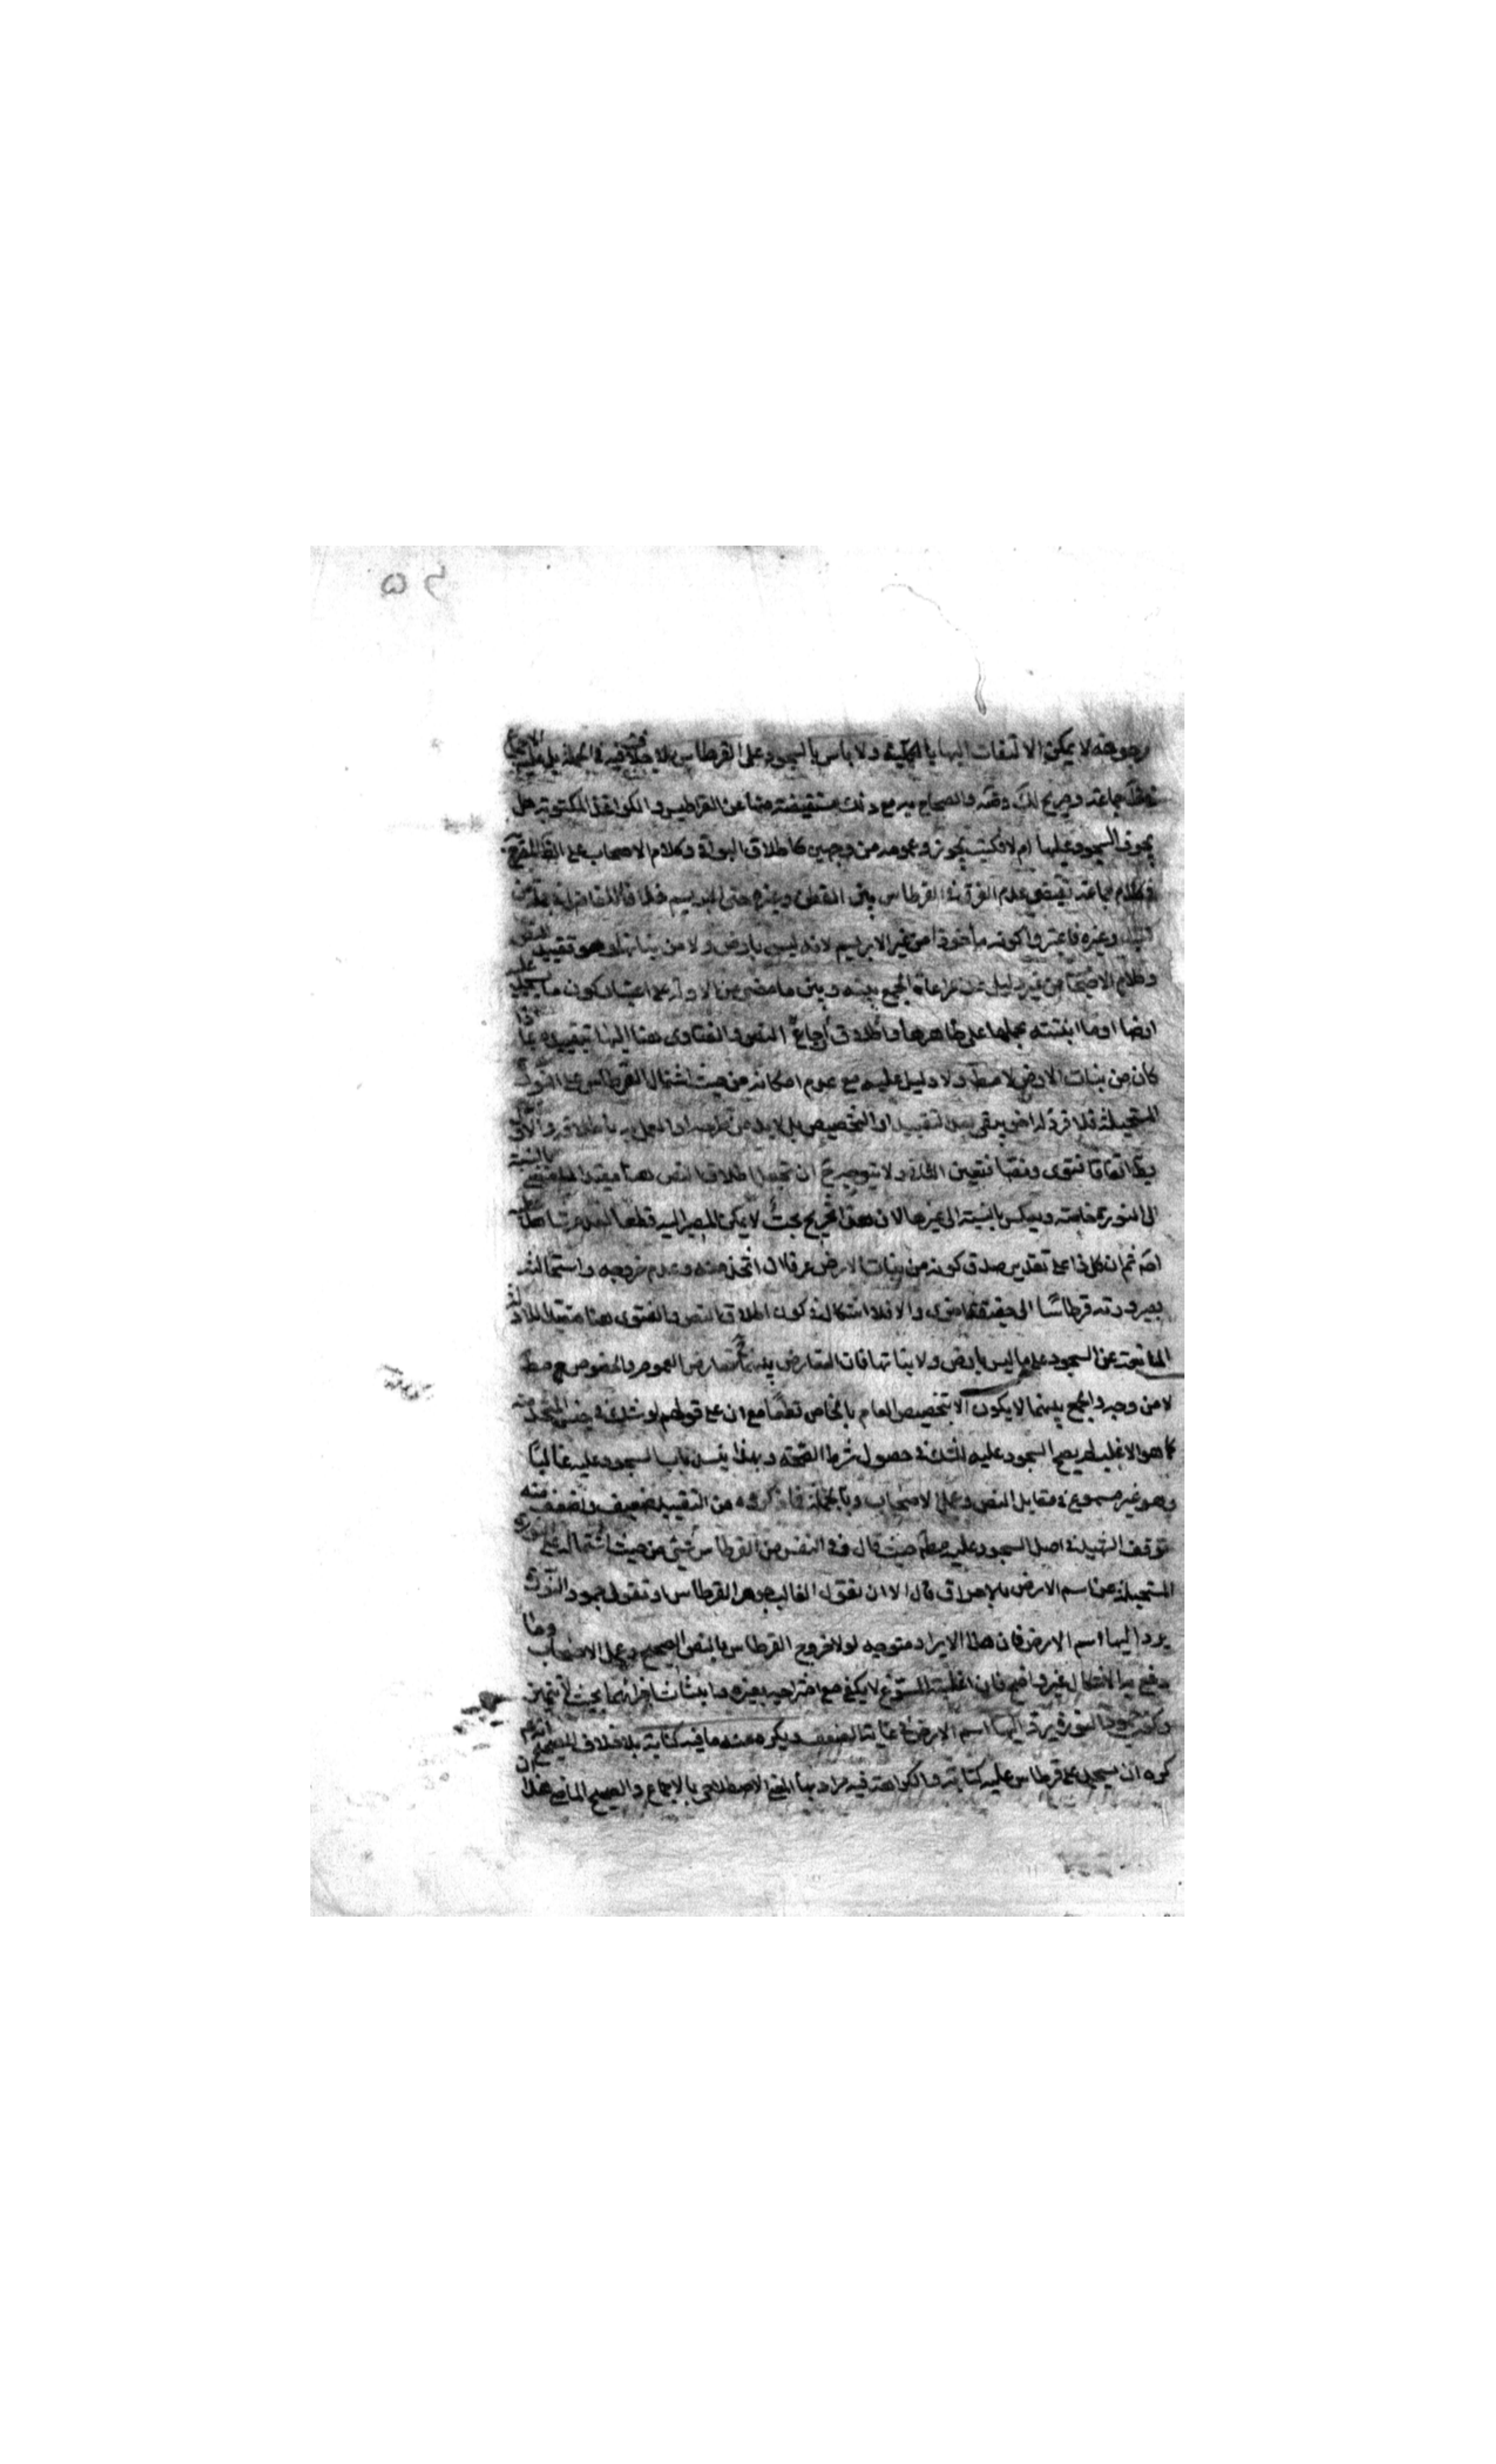 مرجوحة لا يمكن الالتفات اليها بالكلية ولا باس بالسجود على القرطاس بلا خلاف فيه في الجملة بل عليه الاجماع
جماعة وصريح لك وضه والصحاح به مع ذلك مستفيضة منها عن القراطيس والكواغذ المكتوبة هل
يجوز السجود عليها ام لا فكتب يجوز وعمومه من وجهين كاطلاق البواقي وكلام الاصحاب على
وكلام جماعة يقتضي عدم الفرق في القرطاس بين القطن وغيره حتى الابريسم خلافا للفاضل في جملة من
كتبه وغيره فاعتبروا كونه مأخوذا من غير الابريسم لانه ليس بارض ولا من نباتها وهو تقييد للنص
وكلام الاصحاب من غير دليل مراعاة الجمع بينه وبين ما مضى من الادلة على اعتبار كون ما يسجد عليه
ارضا او ما انبتته بحملها على ظاهرها واطلاق ارجاع النص والفتاوى هنا اليها بتقييده بما اذا
كان من نبات الارض لا مط ولا دليل عليه مع عدم امكانه من حيث اشتمال القرطاس على النورة
المستحيلة فلا فرد له اخر يبقى بعد التقييد او التخصيص بل لابد من طرحه او العمل به باطلاقه والاول
بط اتفاقا فتوى ونصا فتعين الثاني ولا يتوجه ح ان يجعل اطلاق النص هنا مقيدا بالنسبة
الى النورة خاصة ويعكس بالنسبة الى غيرها لان هذا تخريج بحت لا يمكن المصير اليه قطعا لعدم شاهد عليه
اصلا ثم ان كل ذا على تقدير صدق كونه من نبات الارض عرفا ان اتخذ منه وعدم خروجه واستحالته
بصيرورته قرطاسا الى حقيقة اخرى والا فلا اشكال في كون اطلاق النص والفتوى هنا مقيدا للادلة
المانعة عن السجود على ما ليس بارض ولا نباتها فان التعارض بينهما تعارض العموم والخصوص مط
لا من وجه والجمع بينهما لا يكون الا بتخصيص العام بالخاص قطعا مع ان على قولهم لو شك في جنس المتخذ منه
كما هو الاغلب لم يصح السجود عليه للشك في حصول شرط الصحة وبهذا ينسد باب السجود عليه غالبا
وهو غير مسموع في مقابل النص وعمل الاصحاب وبالجملة فما ذكروه من التقييد ضعيف واضعف منه
توقف الشهيد في اصل السجود عليه مط حيث قال في النفس من القرطاس شئ من حيث اشتماله على النورة
المستحيلة عن اسم الارض بالاحراق قال الا ان نقول الغالب جوهر القرطاس او نقول جمود النورة
يرد اليها اسم الارض فان هذا الايراد متوجه لولا خروج القرطاس بالنص الصحيح وعمل الاصحاب وما
دفع به الاشكال غير واضح فان اغلبية المسوغ لا يكفي مع امتزاجه بغيره وانبثاث اجزائهما بحيث لا يتميز
وكون جمود النورة يرد اليها اسم الارض في غاية الضعف ويكره منه ما فيه كتابة بلا خلاف للصحيح انه ع
كره ان يسجد على قرطاس عليه كتابة والكراهة فيه مراد بها المعنى الاصطلاحي بالاجماع والصحيح الماضي هذا